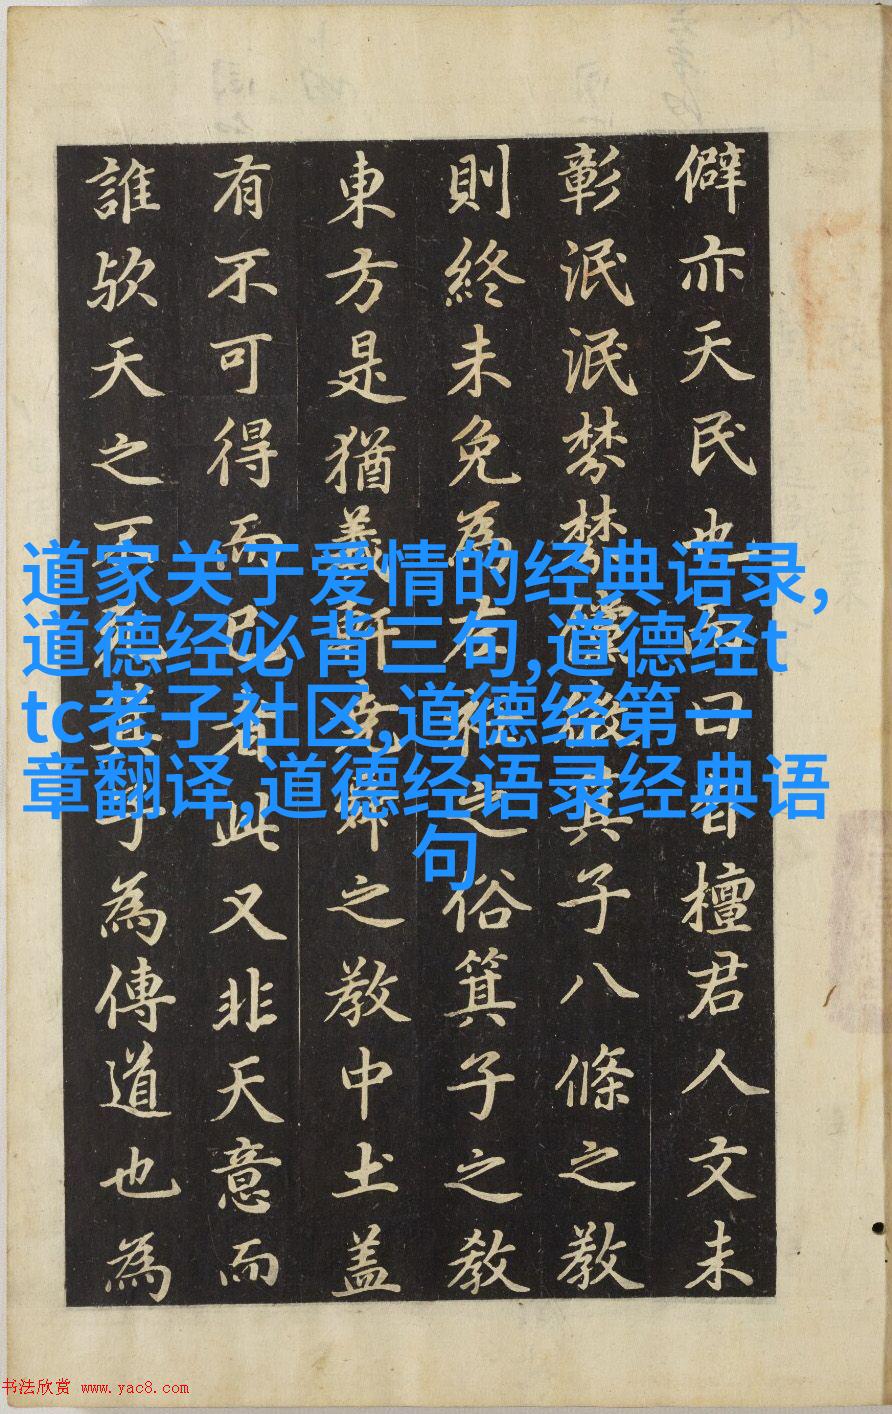 僻亦天民也而曰昔檀君人文未
彰泯泯棼棼儻微箕子八條之教
則終未免為左衽之俗箕子之教
東方是猶羲軒堯舜之教中土蓋
有不可得而已者此又非天意而
誰歟天之不死箕子為傳道也為
道家关于爱情的经典语录,
道德经必背三句,道德经t
tc老子社区,道德经第一
章翻译,道德经语录经典语
句
书法欣赏 www.yac8.com